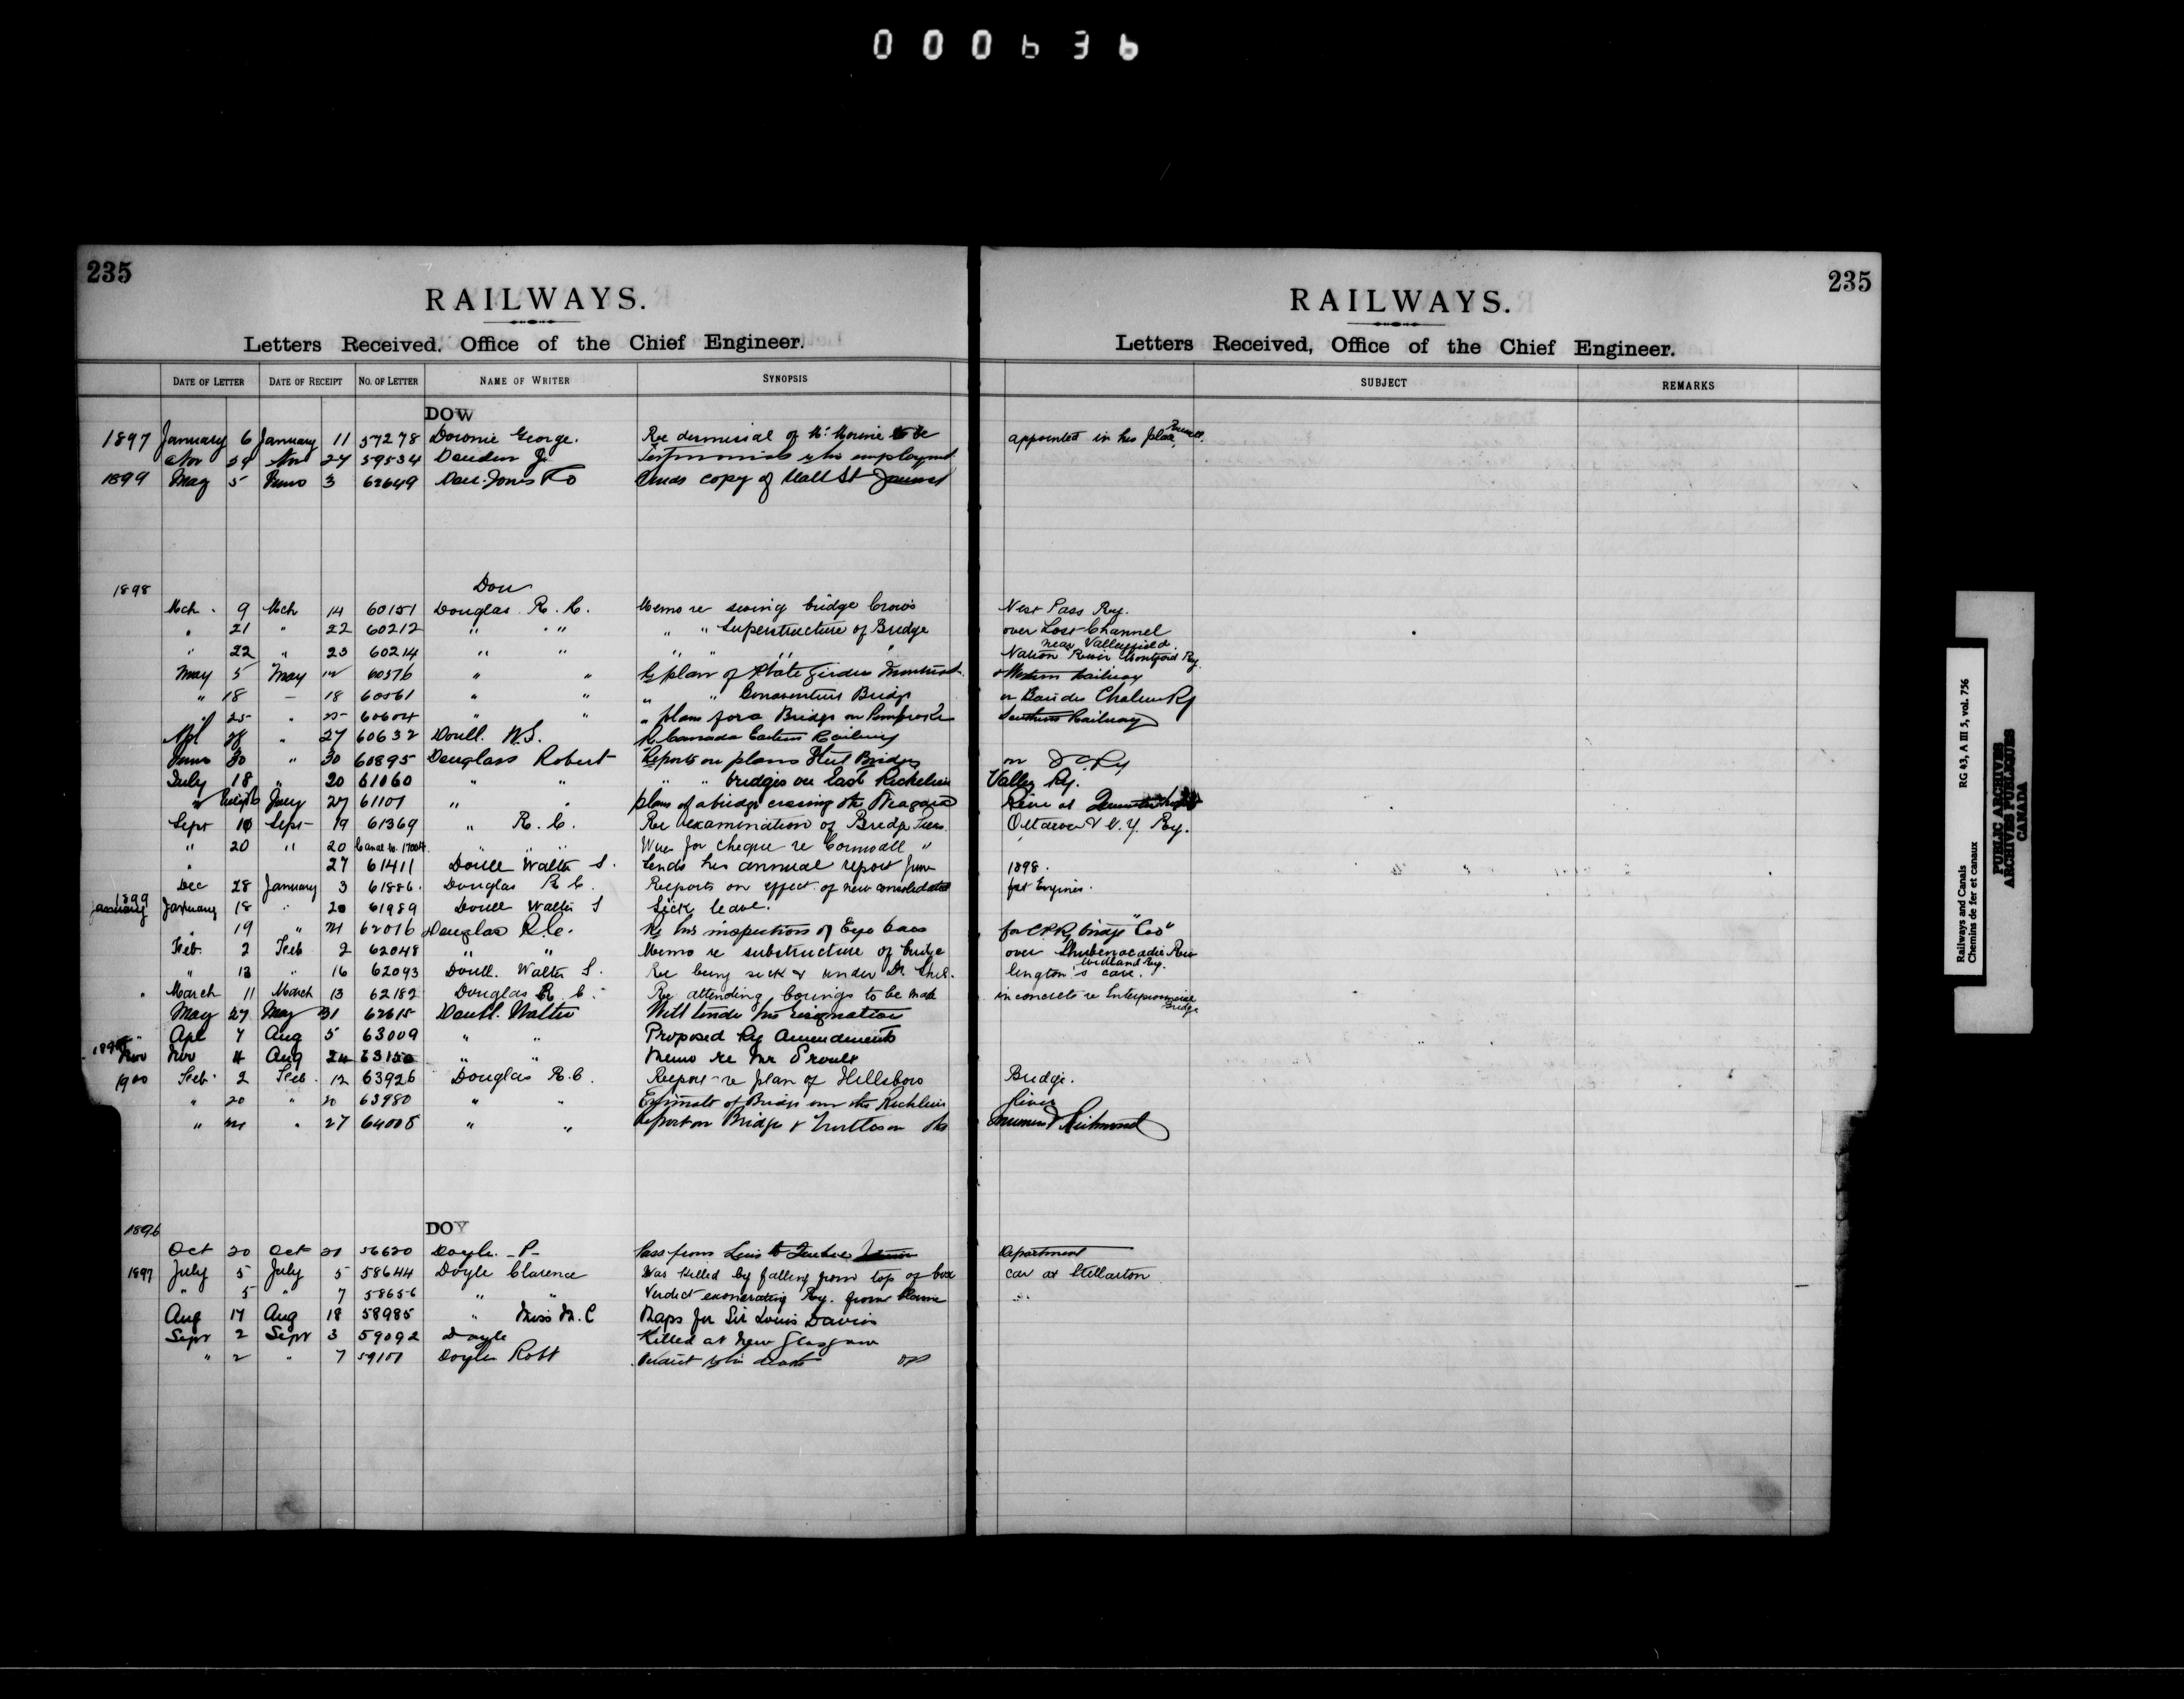 000636
235
RAILWAYS.
Letters Received, Office of the Chief Engineer.
DATE OF LETTER DATE OF RECEIPT NO. OF LETTER NAME OF WRITER SYNOPSIS
DOW
1897 January 6 January 11 57278 Downie George. Re dismissal of to be
Nov 24 Nov 27 59534 Testimonials employment
1899 May 5 June 3 62649 Dow. Jones Co Sends copy of Wall St Journal
1898 Dou
Mch 9 Mch 14 60151 Douglas R. C. Memo re swing bridge Crow's
" 21 " 22 60212 " " " " Superstructure of Bridge
" 22 " 23 60214 " " " " " "
May 5 May 12 60576 " " Re plan of Plate Girder Montreal
" 18 – 18 60561 " " " " Bonaventure Bridge
" 25 " 25 60604 " " " plans for a Bridge on Pembroke
Apl 28 " 27 60632 Doull. W.S. Re Canada Eastern Railway
June 30 " 30 60895 Douglass Robert Reports on plans Steel Bridges
July 18 " 20 61060 " " " " bridges on East Richelieu
" July 27 61101 " " plans of a bridge crossing the Niagara
Sept 10 Sept 19 61369 " R. C. Re examination of Bridge Piers.
" 20 " 20 Canal No. 17004. " " Wires for cheque re Cornwall "
" 27 61411 Doull Walter S. Sends his annual report June
Dec 28 January 3 61886. Douglas R C. Reports on effect of new consolidated
1899
January January 18 " 20 61989 Doull Walter S Sick leave.
" 19 " 21 62016 Douglas R.C. Re his inspection of Eye bars
Feb. 2 Feb 2 62048 " " Memo re substructure of bridge
" 13 " 16 62093 Doull. Walter S. Re being sick & under Dr. Shil-
" March 11 March 13 62182 Douglas R. C. Re attending borings to be made
May 27 May 31 62615 Doull. Walter Will tender his resignation
" Apl 7 Aug 5 63009 " " Proposed Ry Amendments
Nov Nov 4 Aug 24 63150 " " Memo re Mr Proulx
1900 Feb. 2 Feb. 12 63926 Douglas R.C. Report re plan of Hillsboro
" 20 " 20 63980 " " Estimate of Bridge over the Richelieu
" 21 " 27 64005 " " Report on Bridges & Trestles on the
1896 DOY
Oct 20 Oct 21 56620 Doyle. –P– Pass from Levis to
1897 July 5 July 5 58644 Doyle Clarence Was killed by falling from top of box
" 5 " 7 58656 " " Verdict exonerating Ry. from blame
Aug 17 Aug 18 58985 " Miss M. C Maps for Sir Louis Davies
Sept 2 Sept 3 59092 Doyle Killed at New Glasgow
" 2 " 7 59101 Doyle Robt Verdict his death
235
RAILWAYS.
Letters Received, Office of the Chief Engineer.
SUBJECT REMARKS
appointed in his place
Nest Pass Ry.
over Lost Channel
near Valleyfield.
Nation River Montford Ry.
Western Railway
on Baie des Chaleurs Ry
Southern Railway
on
Valley Ry.
River at
Ottawa & N.Y. Ry.
1898.
for Engines.
for C.P.Ry bridge "
over Shubenacadie River
Midland Ry.
lington's care.
in concrete re Interprovincial
Bridge
Bridge.
River
Richmond
Department
car at Stellarton
Railways and Canals RG 43, A III 5, vol. 756
Chemins de fer et canaux
PUBLIC ARCHIVES
ARCHIVES PUBLIQUES
CANADA